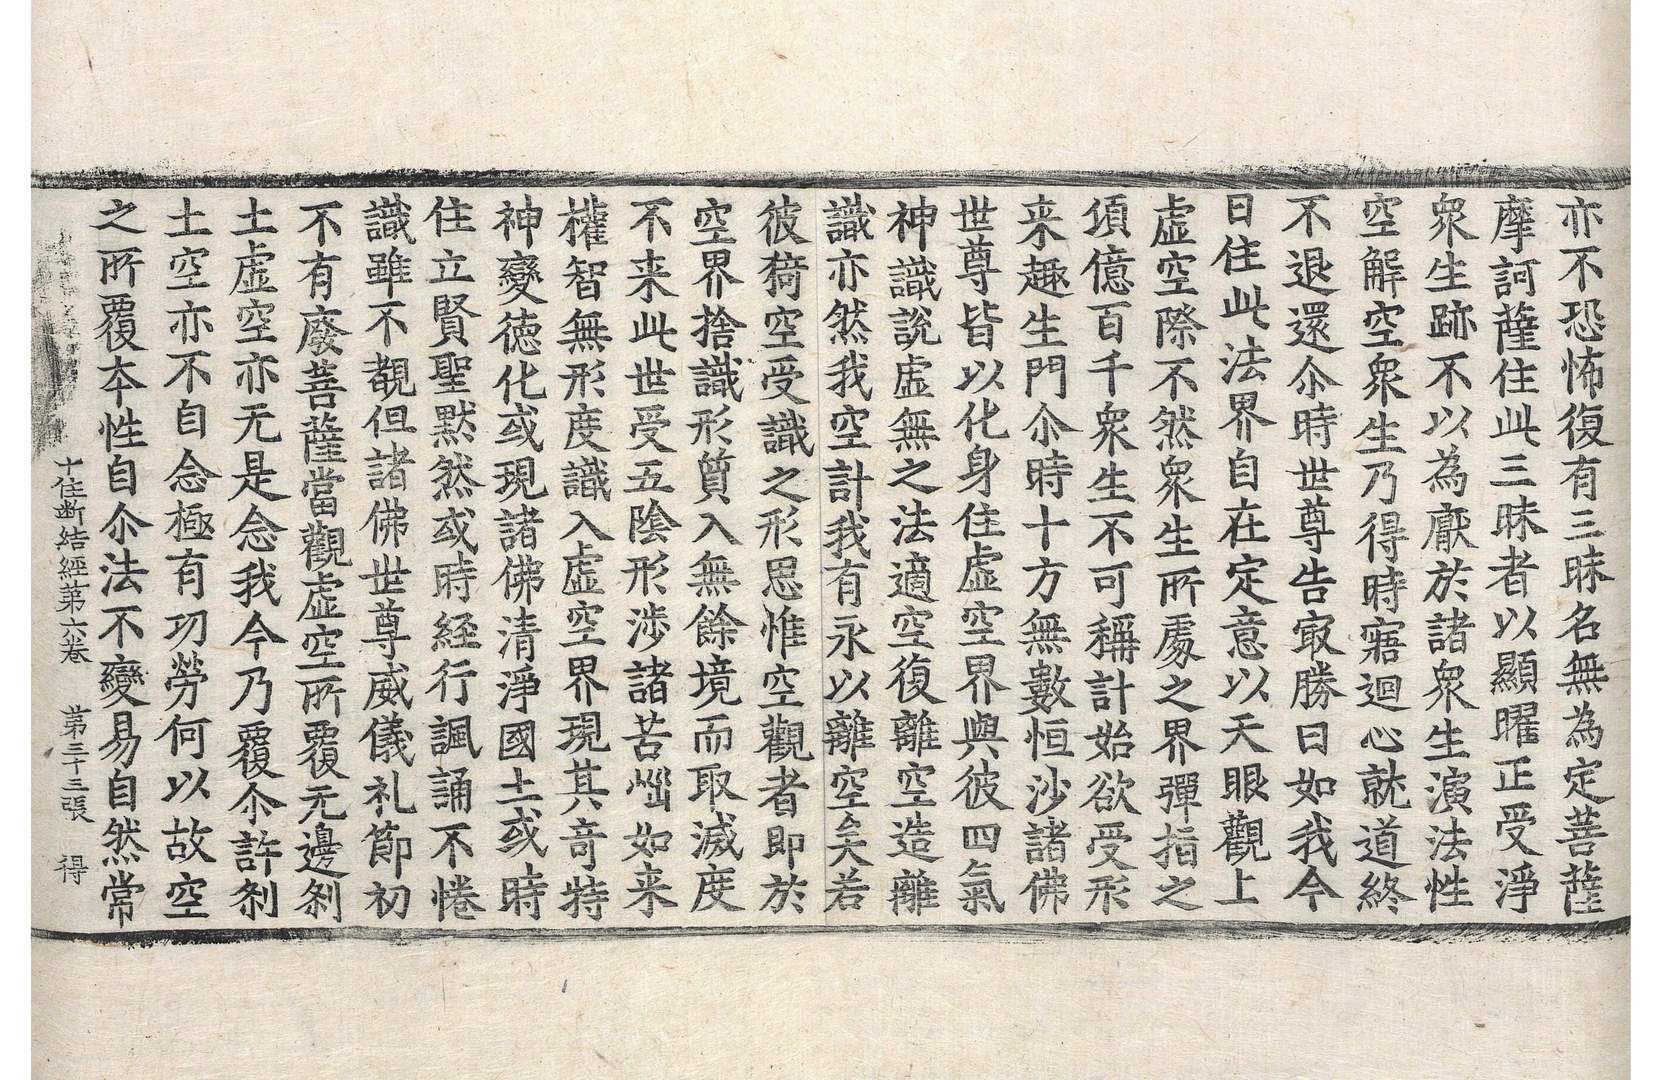 亦不恐怖復有三昧名無為定菩薩
摩訶薩住此三昧者以顯曜正受淨
衆生跡不以為猒於諸衆生演法性
空解空衆生乃得時寤迴心就道終
不退還尒時世尊告㝡勝曰如我今
日住此法界自在定意以天眼觀上
虛空際不然衆生所處之界彈指之
頃億百千衆生不可稱計始欲受形
来趣生門尒時十方無數恒沙諸佛
世尊皆以化身住虛空界與彼四氣
神識說虛無之法適空復離空造離
識亦然我空計我有永以離空矣若
彼猗空受識之形思惟空觀者即於
空界捨識形質入無餘境而取滅度
不来此世受五陰形涉諸苦惱如来
權智無形度識入虛空界現其奇特
神變德化或現諸佛清淨國土或時
住立賢聖默然或時経行諷誦不惓
識雖不覩但諸佛世尊威儀礼節初
不有廢菩薩當觀虛空所覆无邊剎
土虛空亦无是念我今乃覆尒許剎
土空亦不自念極有功勞何以故空
之所覆本性自尒法不變易自然常
十住断結經第六卷　第三十三張　得